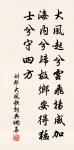 大風起兮雲飛揚威加
海內兮歸故鄉安得猛
士兮守四方
劉邦大風歌詞典網